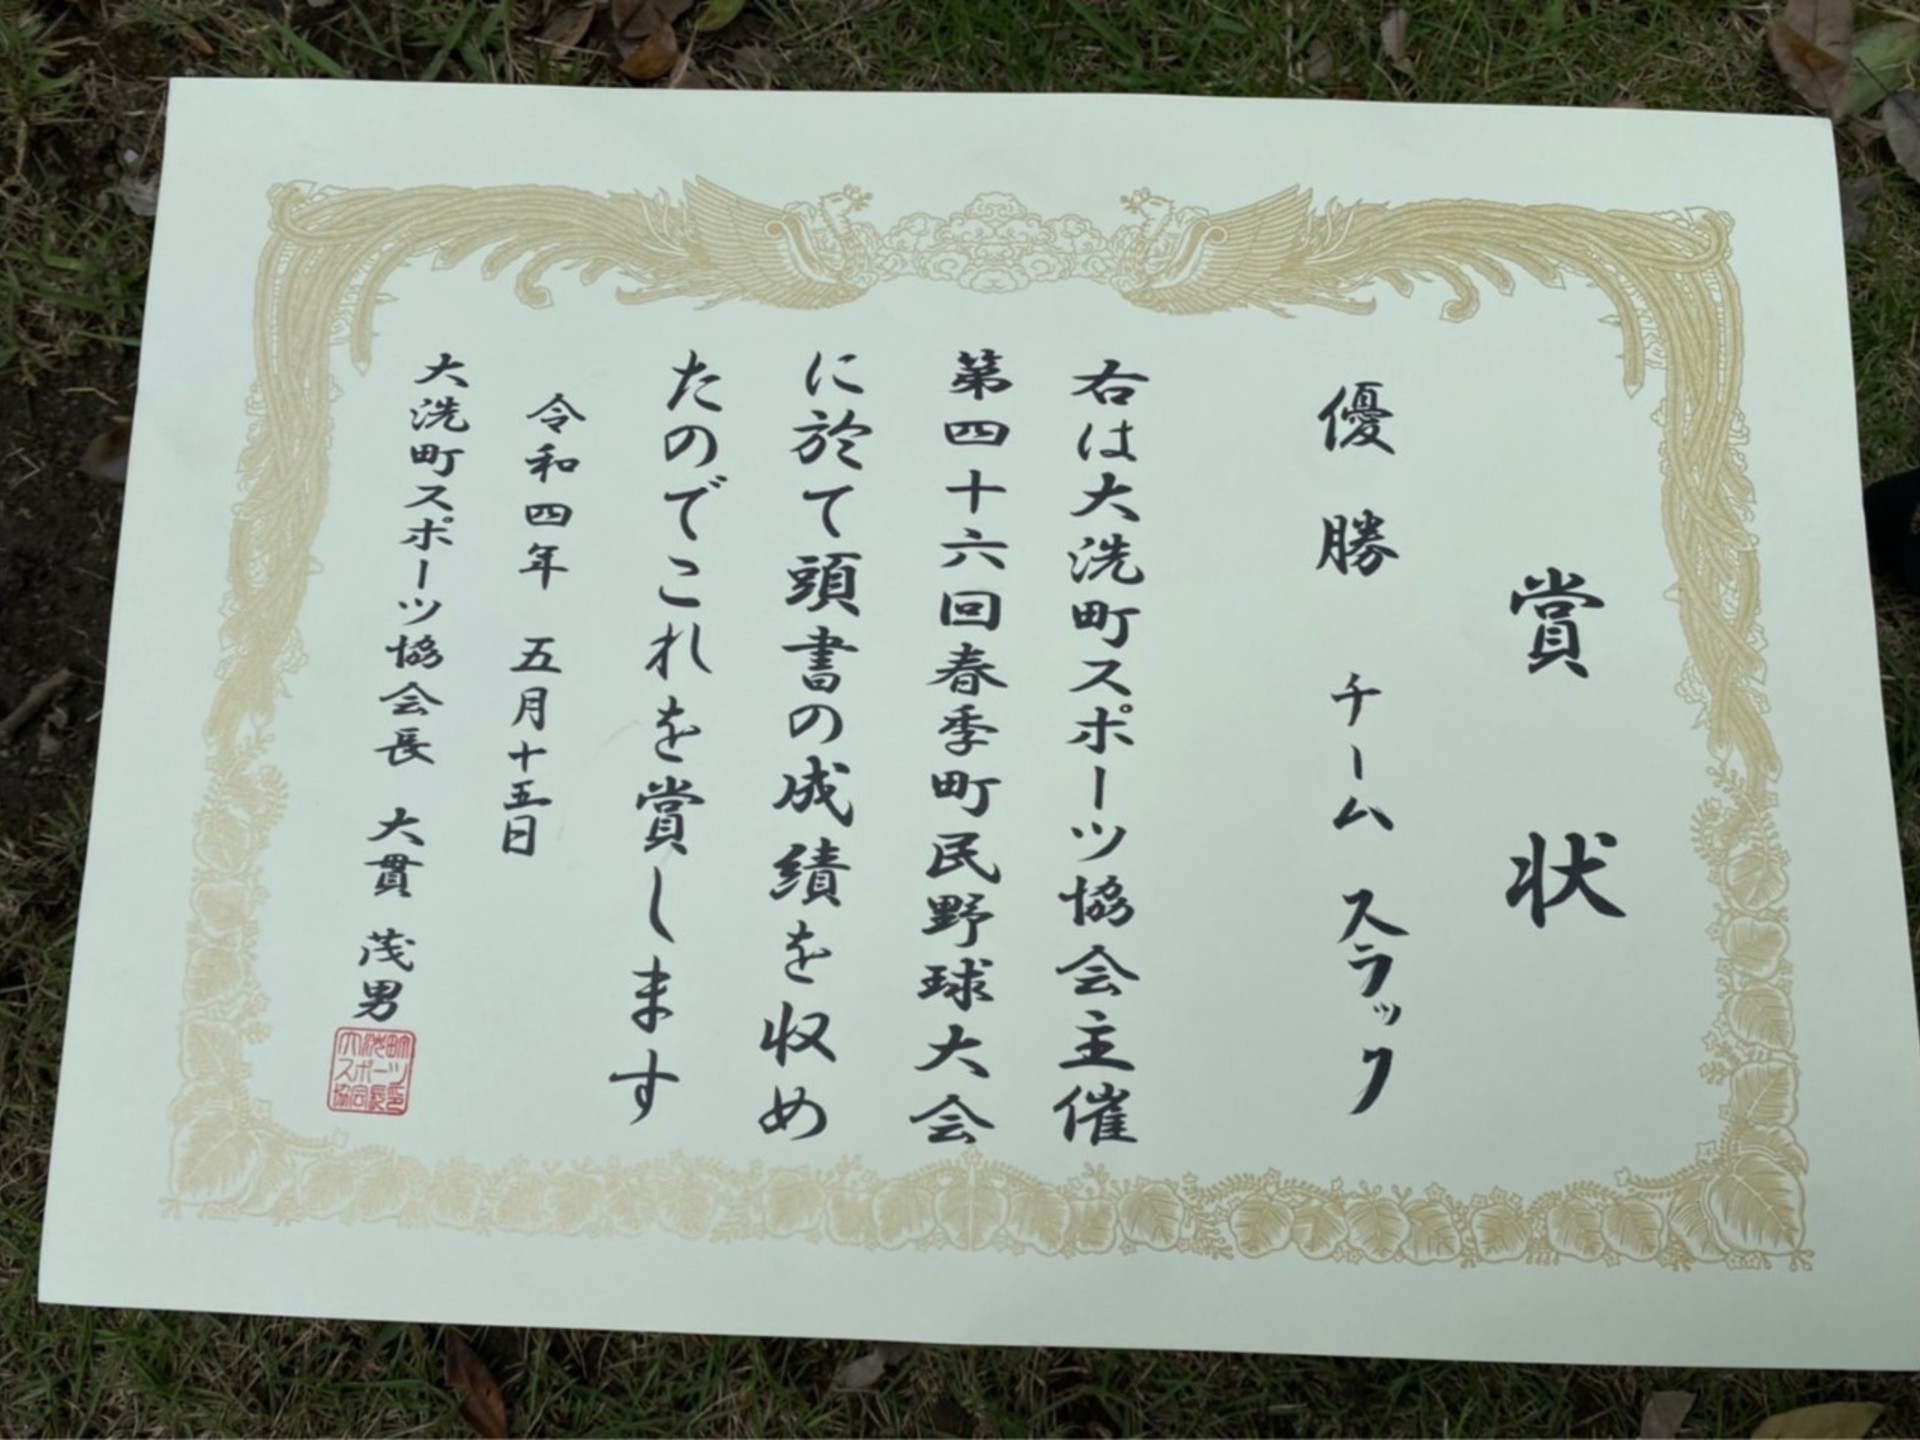 賞状
優勝 チーム スラック
右は大洗町スポーツ協会主催
第四十六回春季町民野球大会
に於て頭書の成績を収め
たのでこれを賞します
令和四年 五月十五日
大洗町スポーツ協会長 大貫 茂男
大洗町
スポーツ
協会長印